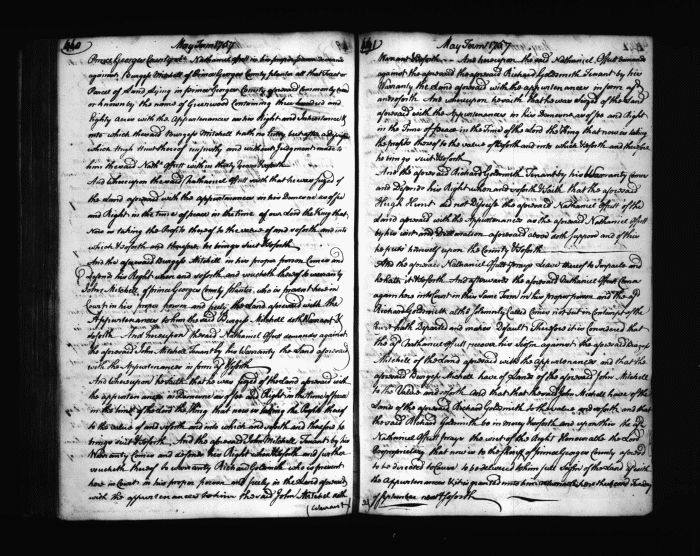 440
May Term 1757
Prince Georges County Nathaniel Offutt in his proper person demands
against Burgess Mitchell of Prince Georges County planter all that Tract or
Parcel of Land Lying in prince Georges County aforesaid Commonly called
or known by the name of Greenwood Containing three hundred and
Eighty Acres with the Appurtenances as his Right and Inheritance &
into which the said Burgess Mitchell hath no Entry but after
which Hugh Hunt thereof unjustly and without Judgment made to
him the said Nathl Offutt within thirty years &soforth
And Whereupon the said Nathaniel Offutt saith that he was seized of
the Land aforesaid with the appurtenances in his Demesne as of fee
and Right in the time of peace in the time of our Lord the King that
Now is taking the Profits thereof to the value &soforth and into
which &soforth and therefore he brings suit &soforth
And the aforesaid Burgess Mitchell in his proper person Comes and
defends his Right when &soforth and voucheth thereof to warranty
John Mitchell of prince Georges County planter who is present here in
Court in his proper person and freely the Land aforesaid with the
Appurtenances to him the said Burgess Mitchell doth Warrant &
soforth And hereupon the said Nathaniel Offutt demands against
the aforesaid John Mitchell Tenant by his Warranty the Land aforesaid
with the Appurtenances in form &soforth
And Whereupon he saith that he was seized of the Land aforesaid with
the appurtenances in Demesne as of fee and Right in the time of peace
in the time of the Lord the King that now is taking the Profits thereof
to the value &soforth and into which &soforth and therefore he
brings suit &soforth. And the aforesaid John Mitchell Tenant by his
Warranty Comes and defends his Right when &soforth and further
voucheth thereof to warranty Richard Goldsmith who is present
here in Court in his proper person and freely the Land aforesaid
with the appurtenances to him the said John Mitchell doth
(Warrant
441
May Term 1757
Warrant &soforth. And hereupon the said Nathaniel Offutt demands
against the aforesaid Richard Goldsmith Tenant by his
Warranty the Land aforesaid with the appurtenances in form af
&soforth And whereupon he saith that he was seized of the Land
aforesaid with the Appurtenances in his Demesne as of fee and Right
in the Time of peace in the Time of the Lord the King that now is taking
the profits thereof to the value &soforth and into which &soforth and therefore
he brings suit &soforth
And the aforesaid Richard Goldsmith Tenant by his Warranty Comes
and Defends his Right when &soforth & saith that the aforesaid
Hugh Hunt did not Disseize the aforesaid Nathaniel Offutt of the
Land aforesaid with the Appurtenances as the aforesaid Nathaniel Offutt
by his writ and Declaration aforesaid above doth suppose and of this
he puts himself upon the Country &soforth
And the aforesaid Nathaniel Offutt prays Leave thereof to Imparle and
he hath it &soforth And afterwards the aforesaid Nathaniel Offutt Came
again here into Court in this same Term in his proper person and the af
Richard Goldsmith altho Solemnly Called Comes not but in Contempt of the
Court hath Departed and makes Default Therefore it is Considered that
the sd Nathaniel Offutt recover his Seizin against the aforesaid Burgess
Mitchell of the Land aforesaid with the Appurtenances and that the
aforesaid Burgess Mitchell have of Lands of the aforesaid John Mitchell
to the Value &soforth And that that the said John Mitchell have of the
Lands of the aforesaid Richard Goldsmith to the value &soforth and that
the said Richard Goldsmith be in mercy &soforth and upon this the sd
Nathaniel Offutt prays the writ of the Right Honourable the Lord
Proprietary that now is to the Sheriff of prince Georges County aforesd
to be directed to Cause to be delivered to him full Seizin of the Land af with
the Appurtenances & it is granted unto him returnable here the Second Tuesday
of next &soforth